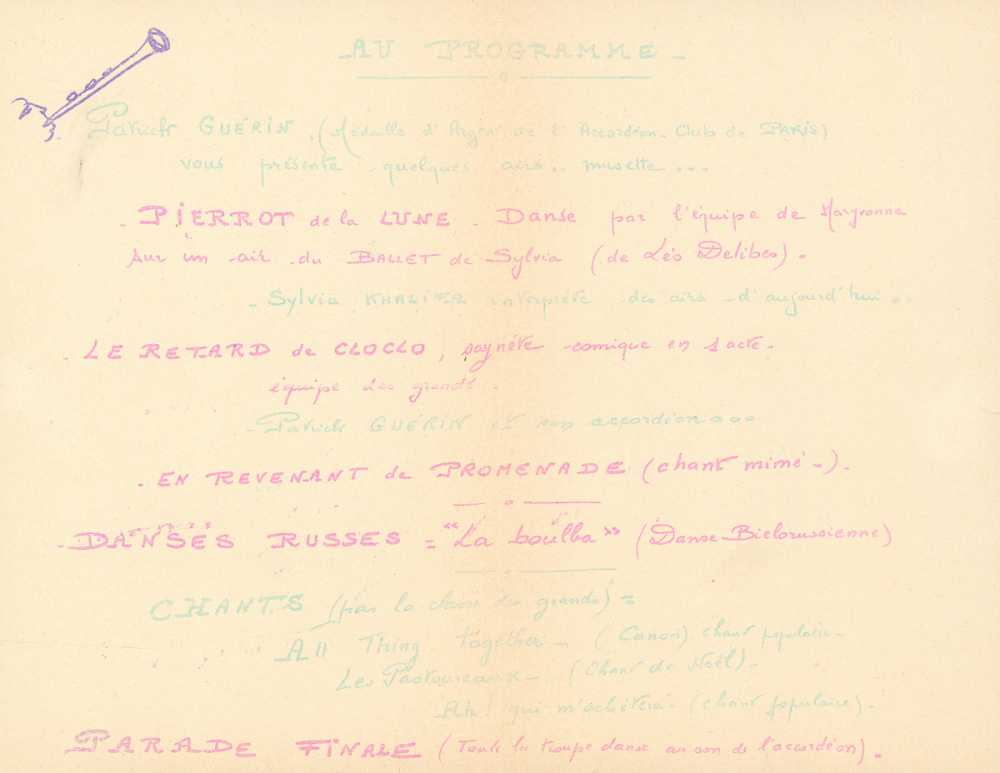 - AU PROGRAMME -
. Patrick GUÉRIN, (Médaille d'Argent de l'Accordéon-Club de PARIS)
vous présente quelques airs.. musette...
- PIERROT de la LUNE - Danse par l'équipe de Maryvonne
sur un air du BALLET de Sylvia (de Léo Delibes).
- Sylvia KHALIFA interprète des airs d'aujourd'hui.
- LE RETARD de CLOCLO, saynète comique en 1 acte.
équipe des grands.
- Patrick GUÉRIN et son accordéon...
- EN REVENANT de PROMENADE (chant mimé.).
- DANSES RUSSES = "La boulba" (Danse Bielorussienne)
CHANTS (par la classe des grands) =
All Thing together - (Canon) chant populaire -
Les Pastoureaux - (Chant de Noël).
Ah! qui m'achètera - (chant populaire).
PARADE FINALE (Toute la troupe danse au son de l'accordéon).